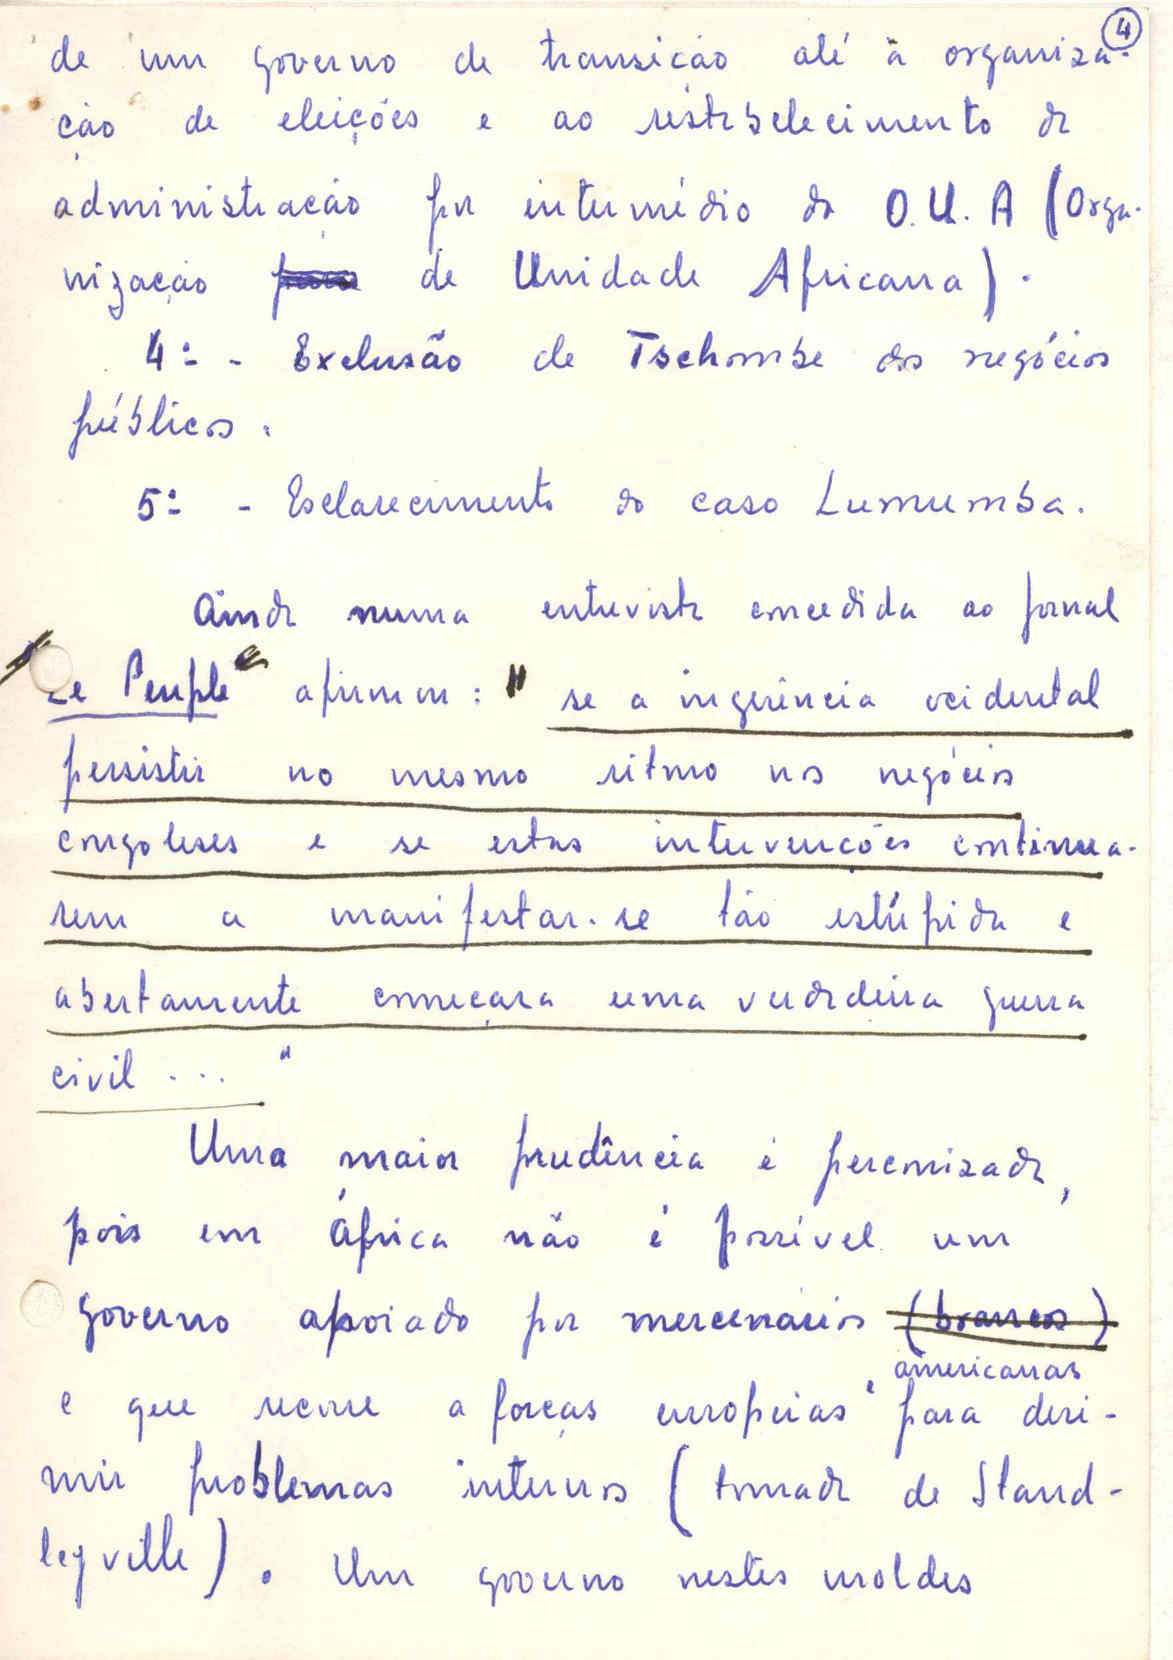 4
de um governo de transição até à organiza-
ção de eleições e ao restabelecimento da
administração por intermédio da O.U.A (Orga-
nização para de Unidade Africana).
4º - Exclusão de Tschombe dos negócios
públicos.
5º - Esclarecimento do caso Lumumba.
Ainda numa entrevista concedida ao jornal
"Le Peuple" afirmou: " se a ingerência ocidental
persistir no mesmo ritmo nos negócios
congoleses e se estas intervenções continua-
rem a manifestar-se tão estúpida e
abertamente começara uma verdadeira guerra
civil ... "
Uma maior prudência é preconizada,
pois em África não é possível um
governo apoiado por mercenários (brancos)
americanas
e que recorre a forças europeias e para diri-
mir problemas internos (tomada de Stand-
leyville). Um governo nestes moldes